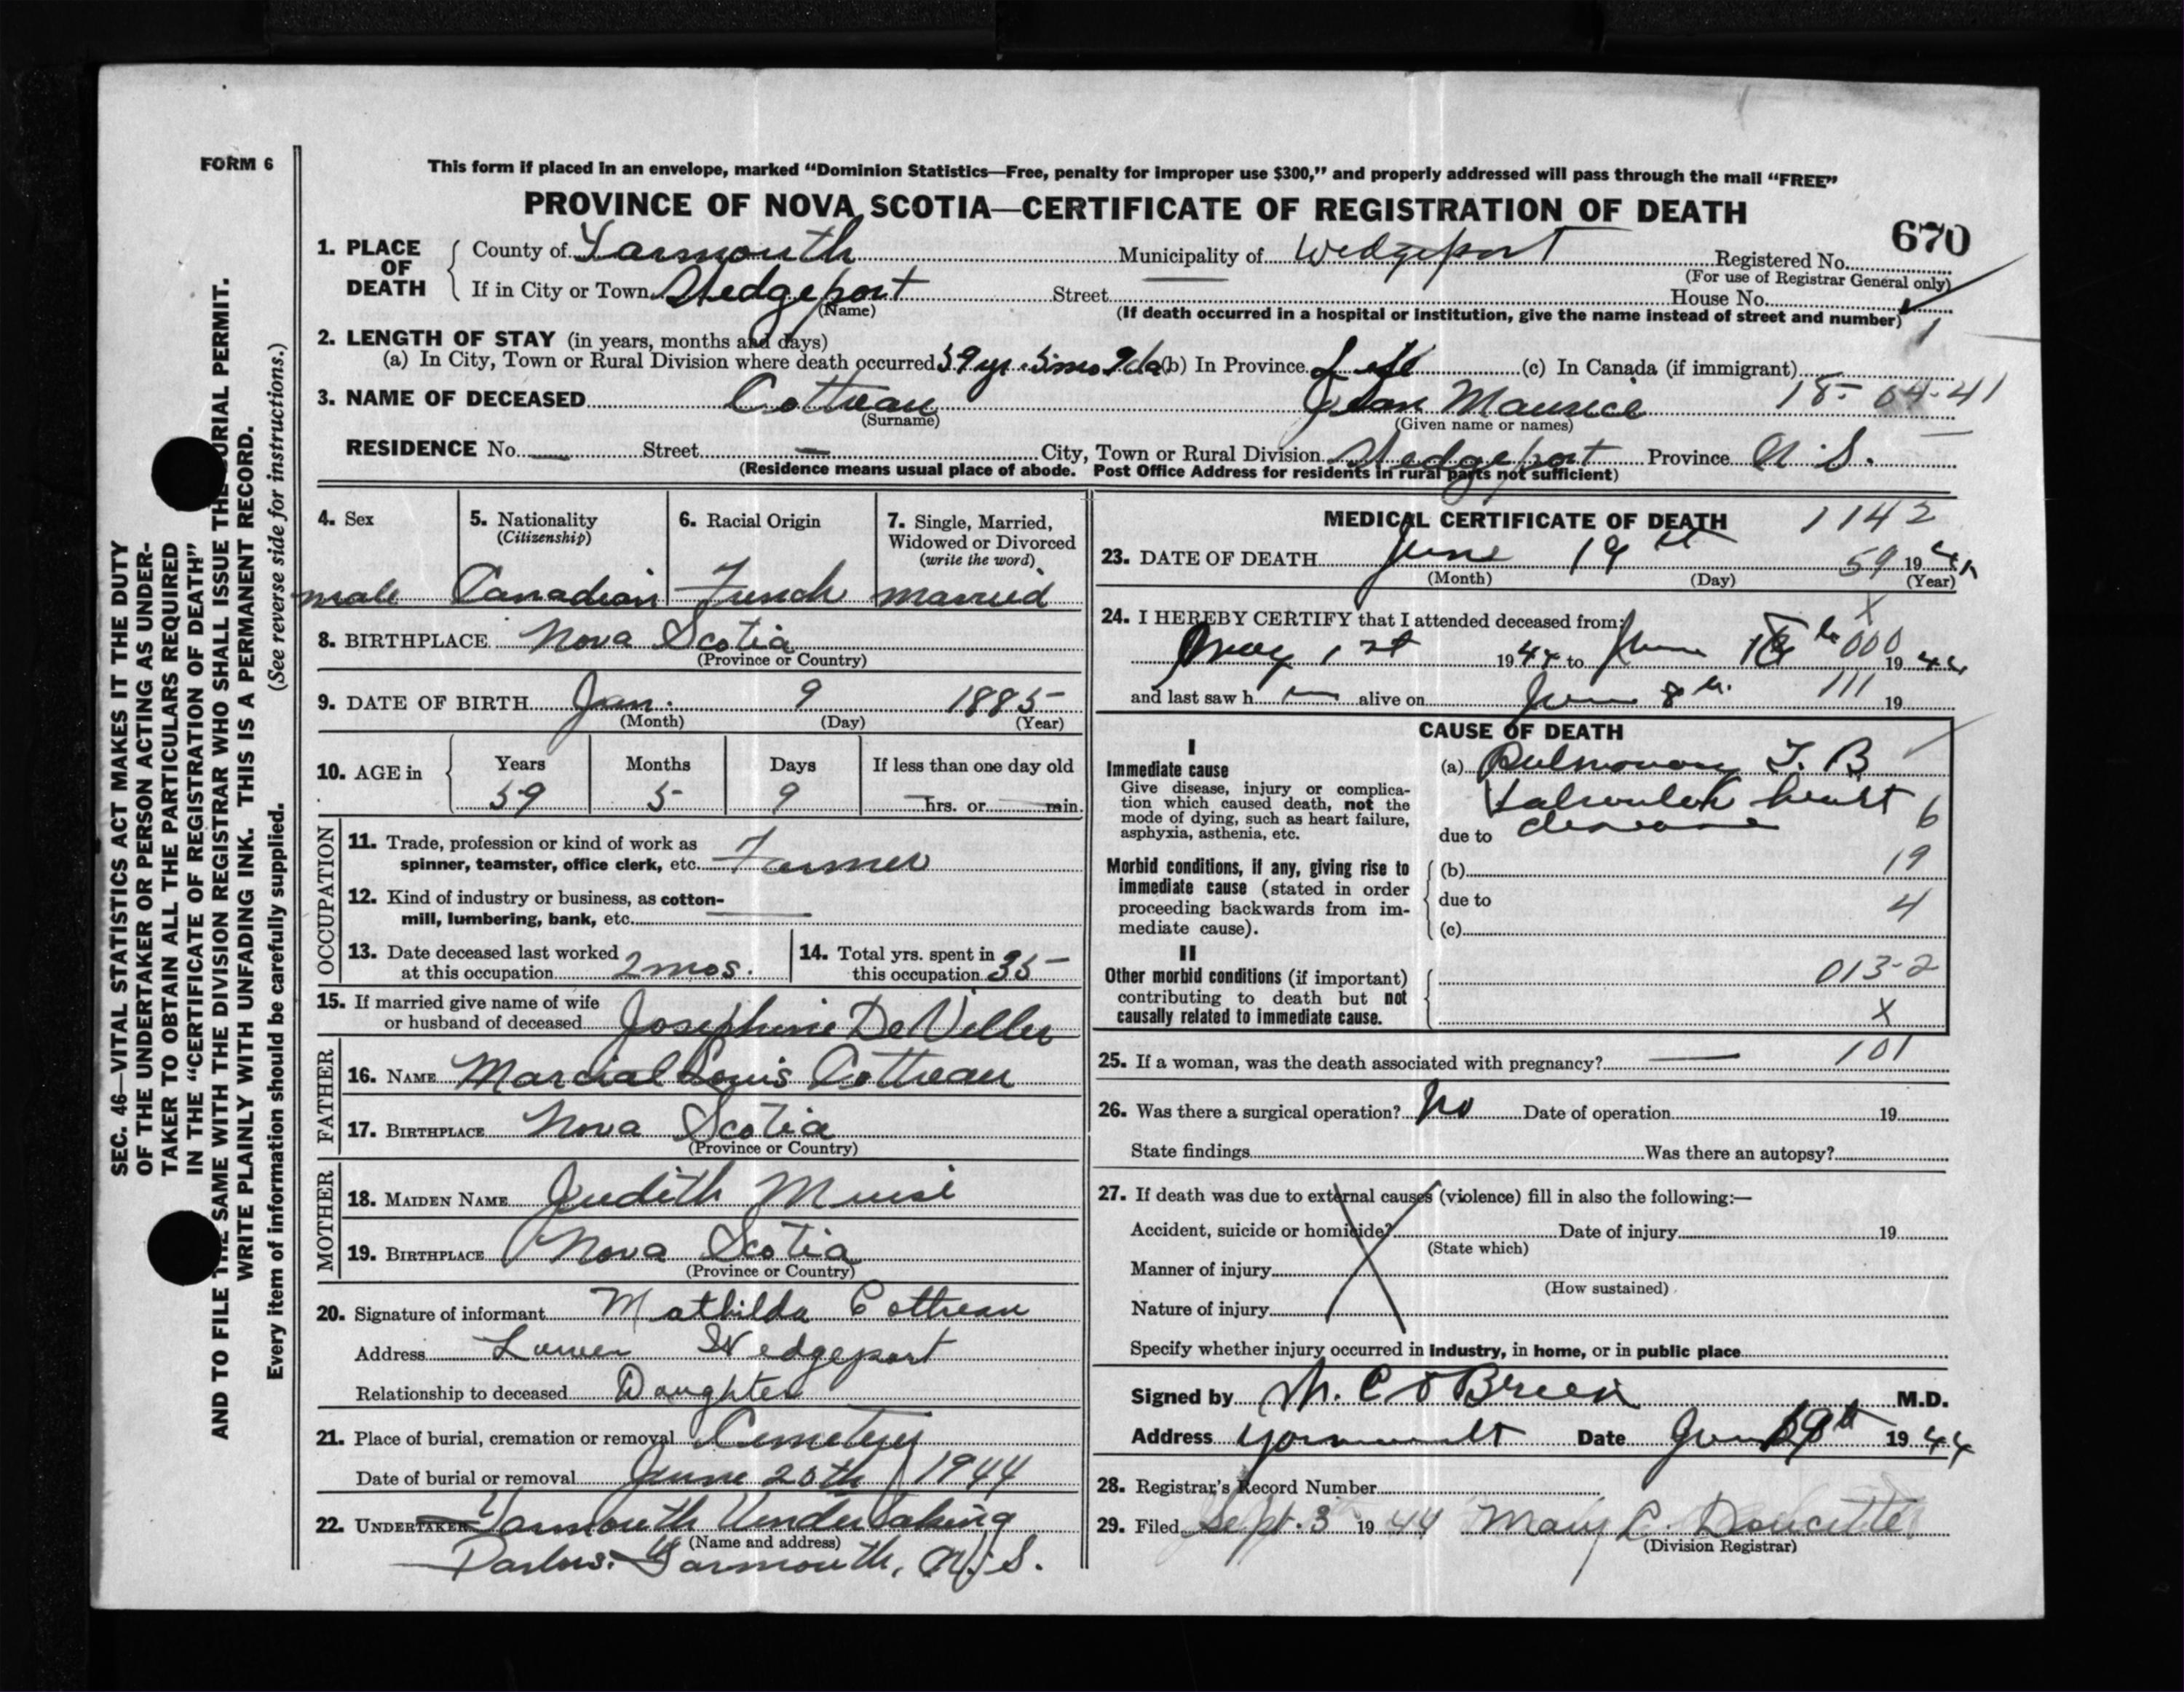 FORM 6
This form if placed in an envelope, marked "Dominion Statistics—Free, penalty for improper use $300," and properly addressed will pass through the mail "FREE"
PROVINCE OF NOVA SCOTIA—CERTIFICATE OF REGISTRATION OF DEATH
670
1. PLACE OF DEATH
County of Yarmouth Municipality of Wedgeport Registered No.
(For use of Registrar General only)
If in City or Town Wedgeport Street House No.
(Name) (If death occurred in a hospital or institution, give the name instead of street and number)
1
2. LENGTH OF STAY (in years, months and days)
(a) In City, Town or Rural Division where death occurred 59 yr. 5 mo 9 da (b) In Province Life (c) In Canada (if immigrant)
3. NAME OF DECEASED Cottreau Jean Maurice 18- 04-41
(Surname) (Given name or names)
RESIDENCE No. — Street — City, Town or Rural Division Wedgeport Province N. S.
(Residence means usual place of abode. Post Office Address for residents in rural parts not sufficient)
4. Sex male
5. Nationality (Citizenship) Canadian
6. Racial Origin French
7. Single, Married, Widowed or Divorced (write the word) married
8. BIRTHPLACE Nova Scotia
(Province or Country)
9. DATE OF BIRTH Jan. 9 1885
(Month) (Day) (Year)
10. AGE in Years 59 Months 5 Days 9 If less than one day old — hrs. or — min.
OCCUPATION
11. Trade, profession or kind of work as
spinner, teamster, office clerk, etc. Farmer
12. Kind of industry or business, as cotton-
mill, lumbering, bank, etc. —
13. Date deceased last worked
at this occupation 2 mos.
14. Total yrs. spent in
this occupation 35
15. If married give name of wife
or husband of deceased Josephine DeViller
FATHER
16. NAME Marcial Louis Cottreau
17. BIRTHPLACE Nova Scotia
(Province or Country)
MOTHER
18. MAIDEN NAME Judith Muise
19. BIRTHPLACE Nova Scotia
(Province or Country)
20. Signature of informant Mathilda Cottreau
Address Lower Wedgeport
Relationship to deceased Daughter
21. Place of burial, cremation or removal Cemetery
Date of burial or removal June 20th 1944
22. UNDERTAKER Yarmouth Undertaking
(Name and address)
Parlors. Yarmouth, N. S.
MEDICAL CERTIFICATE OF DEATH 1142
23. DATE OF DEATH June 19th 59 1944
(Month) (Day) (Year)
X
24. I HEREBY CERTIFY that I attended deceased from:
May 1st 1944 to June 18th 000 1944
and last saw h — alive on June 8th. 111 19
CAUSE OF DEATH
I
Immediate cause
Give disease, injury or complica-
tion which caused death, not the
mode of dying, such as heart failure,
asphyxia, asthenia, etc.
(a) Pulmonary T. B
Valvular heart 6
due to disease
Morbid conditions, if any, giving rise to
immediate cause (stated in order
proceeding backwards from im-
mediate cause).
(b) 19
due to 4
(c)
II
Other morbid conditions (if important)
contributing to death but not
causally related to immediate cause.
013-2
X
25. If a woman, was the death associated with pregnancy? — 101
26. Was there a surgical operation? No Date of operation 19
State findings Was there an autopsy?
27. If death was due to external causes (violence) fill in also the following:—
Accident, suicide or homicide? Date of injury 19
(State which)
Manner of injury
(How sustained)
Nature of injury
Specify whether injury occurred in industry, in home, or in public place
Signed by M. C O'Brien M.D.
Address Yarmouth Date June 19th 1944
28. Registrar's Record Number
29. Filed Sept. 3 1944 Mary E. Doucette
(Division Registrar)
SEC. 46—VITAL STATISTICS ACT MAKES IT THE DUTY
OF THE UNDERTAKER OR PERSON ACTING AS UNDER-
TAKER TO OBTAIN ALL THE PARTICULARS REQUIRED
IN THE "CERTIFICATE OF REGISTRATION OF DEATH"
AND TO FILE THE SAME WITH THE DIVISION REGISTRAR WHO SHALL ISSUE THE BURIAL PERMIT.
WRITE PLAINLY WITH UNFADING INK. THIS IS A PERMANENT RECORD.
Every item of information should be carefully supplied. (See reverse side for instructions.)